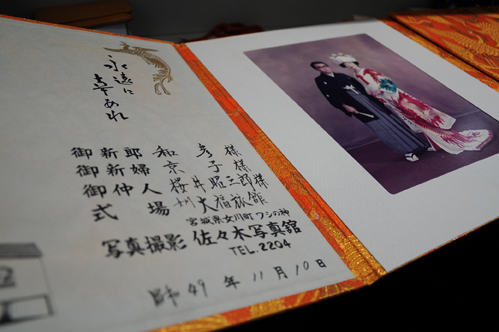 永遠に
幸あれ
御新郎 和彦様
御新婦 京子様
御仲人 桜井昭三郎様
式場 大福旅館
宮城県女川町ワシの神
写真撮影 佐々木写真館
TEL.2204
昭和49年11月10日